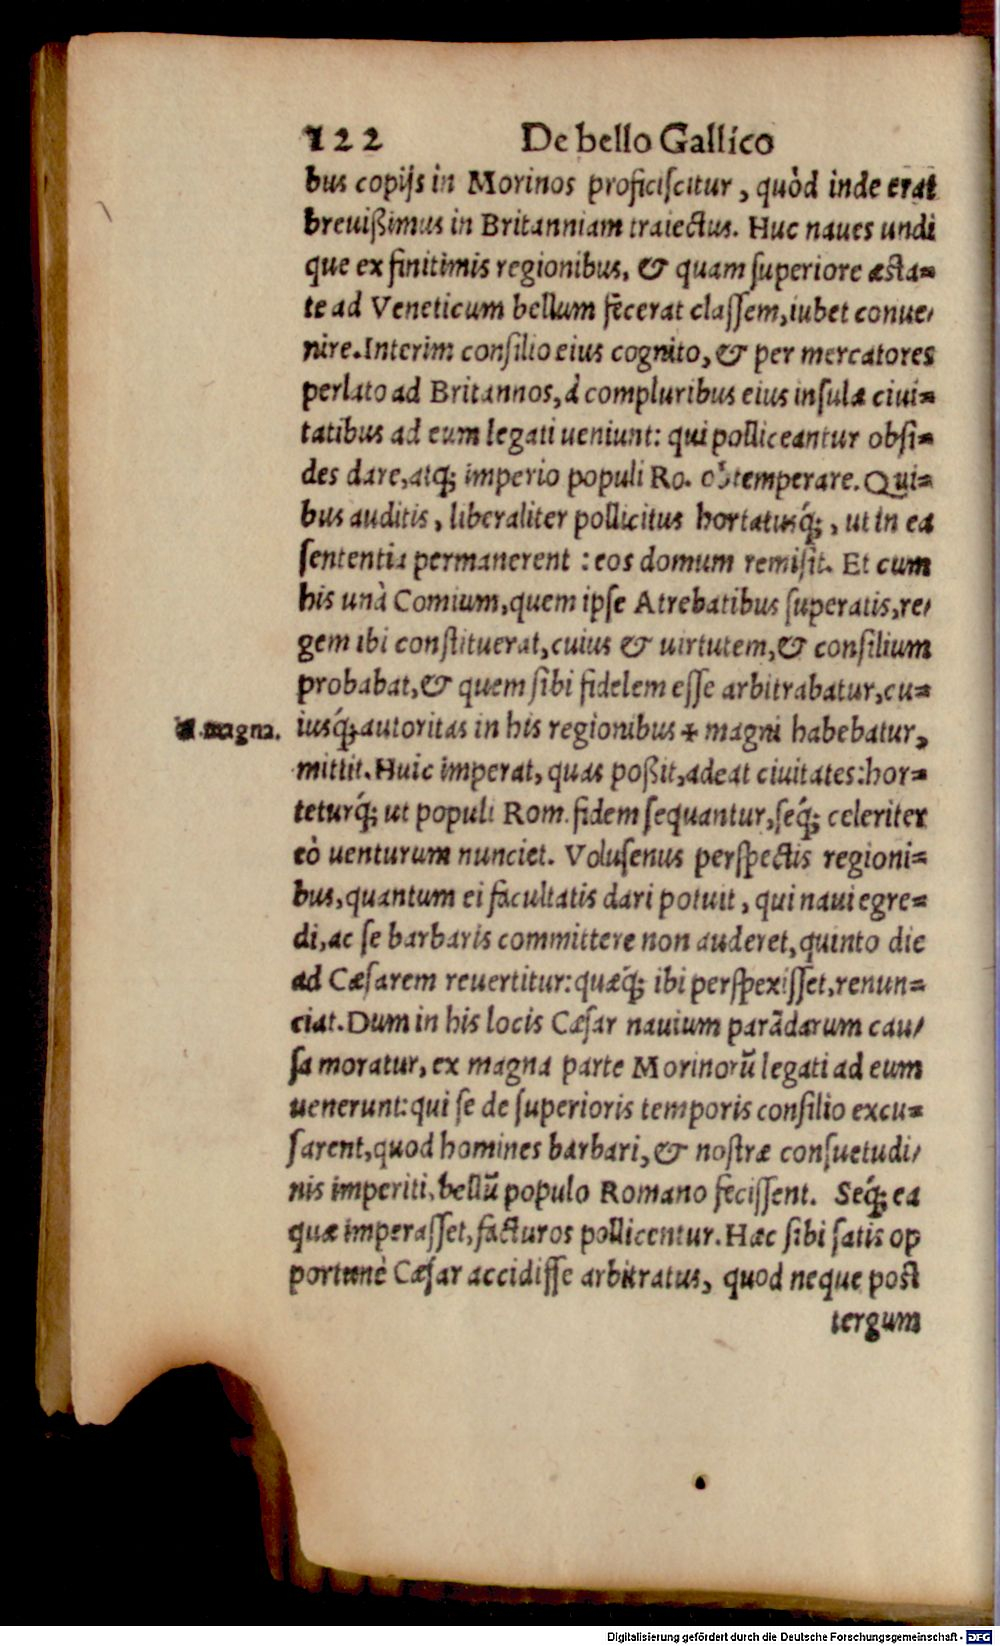 122 De bello Gallico
bus copijs in Morinos proficiscitur, quòd inde erat
breuißimus in Britanniam traiectus. Huc naues undi
que ex finitimis regionibus, & quam superiore æsta=
te ad Veneticum bellum fecerat classem, iubet conue/
nire. Interim consilio eius cognito, & per mercatores
perlato ad Britannos, à compluribus eius insulæ ciui=
tatibus ad eum legati ueniunt: qui polliceantur obsi=
des dare, atq; imperio populi Ro. obtemperare. Qui=
bus auditis, liberaliter pollicitus hortatusq́;, ut in ea
sententia permanerent: eos domum remisit. Et cum
his unà Comium, quem ipse Atrebatibus superatis, re/
gem ibi constituerat, cuius & uirtutem, & consilium
probabat, & quem sibi fidelem esse arbitrabatur, cu=
magna. iusq́; autoritas in his regionibus + magni habebatur,
mittit. Huic imperat, quas poßit, adeat ciuitates: hor=
teturq́; ut populi Rom. fidem sequantur, seq́; celeriter
eò uenturum nunciet. Volusenus perspectis regioni=
bus, quantum ei facultatis dari potuit, qui naui egre=
di, ac se barbaris committere non auderet, quinto die
ad Cæsarem reuertitur: quæq́; ibi perspexisset, renun=
ciat. Dum in his locis Cæsar nauium parãdarum cau/
sa moratur, ex magna parte Morinorũ legati ad eum
uenerunt: qui se de superioris temporis consilio excu=
sarent, quod homines barbari, & nostræ consuetudi/
nis imperiti, bellũ populo Romano fecissent. Seq́; ea
quæ imperasset, facturos pollicentur. Hæc sibi satis op
portunè Cæsar accidisse arbitratus, quod neque post
tergum
Digitalisierung gefördert durch die Deutsche Forschungsgemeinschaft - DFG